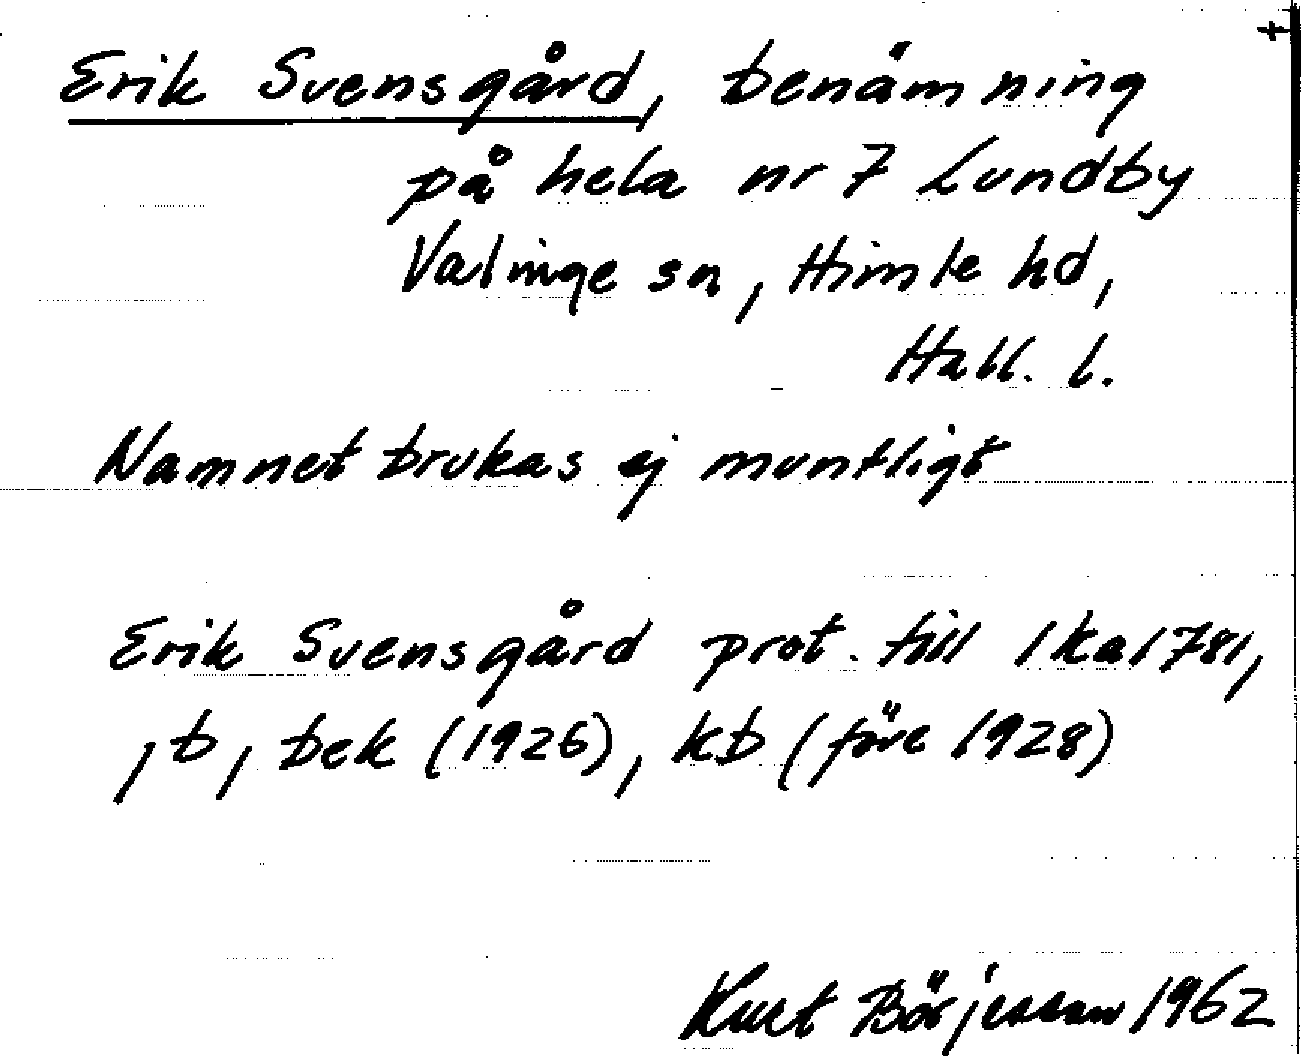 Erik Svensgård, benämning
på hela nr 7 Lundby
Valinge sn, Himle hd,
Hall. l.
Namnet brukas ej muntligt
Erik Svensgård prot. till lka 1781,
, b, bek (1926), kb (före 1928)
Kurt Börjesson 1962